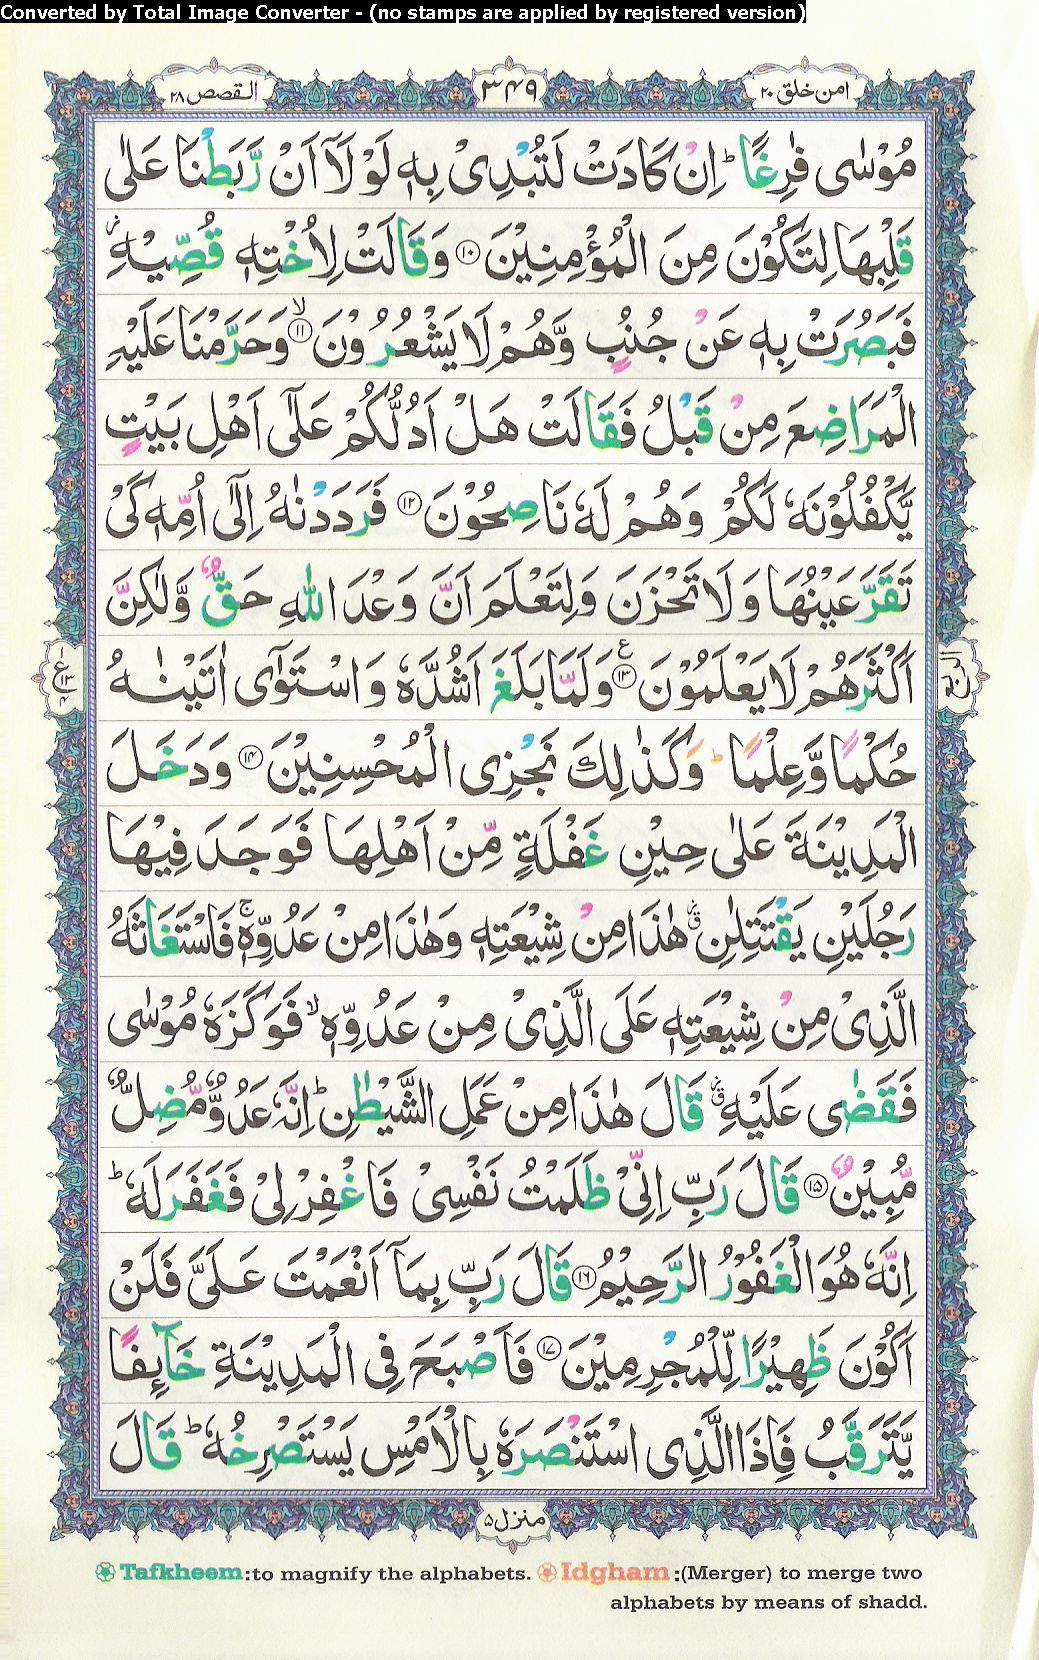 Converted by Total Image Converter - (no stamps are applied by registered version)
امن خلق ۲۰ ۳۴۹ القصص ۲۸
مُوْسٰى فٰرِغًا ؕ اِنْ كَادَتْ لَتُبْدِىْ بِهٖ لَوْ لَاۤ اَنْ رَّبَطْنَا عَلٰى
قَلْبِهَا لِتَكُوْنَ مِنَ الْمُؤْمِنِيْنَ ۝۱۰ وَقَالَتْ لِاُخْتِهٖ قُصِّيْهِ ؗ
فَبَصُرَتْ بِهٖ عَنْ جُنُبٍ وَّهُمْ لَا يَشْعُرُوْنَ ۙ۝۱۱ وَحَرَّمْنَا عَلَيْهِ
الْمَرَاضِعَ مِنْ قَبْلُ فَقَالَتْ هَلْ اَدُلُّكُمْ عَلٰٓى اَهْلِ بَيْتٍ
يَّكْفُلُوْنَهٗ لَكُمْ وَهُمْ لَهٗ نَاصِحُوْنَ ۝۱۲ فَرَدَدْنٰهُ اِلٰٓى اُمِّهٖ كَىْ
تَقَرَّ عَيْنُهَا وَلَا تَحْزَنَ وَلِتَعْلَمَ اَنَّ وَعْدَ اللّٰهِ حَقٌّ وَّلٰكِنَّ
اَكْثَرَهُمْ لَا يَعْلَمُوْنَ ۝۱۳ع وَلَمَّا بَلَغَ اَشُدَّهٗ وَاسْتَوٰٓى اٰتَيْنٰهُ
حُكْمًا وَّعِلْمًا ؕ وَكَذٰلِكَ نَجْزِى الْمُحْسِنِيْنَ ۝۱۴ وَدَخَلَ
الْمَدِيْنَةَ عَلٰى حِيْنِ غَفْلَةٍ مِّنْ اَهْلِهَا فَوَجَدَ فِيْهَا
رَجُلَيْنِ يَقْتَتِلٰنِ ؗ هٰذَا مِنْ شِيْعَتِهٖ وَهٰذَا مِنْ عَدُوِّهٖ ۚ فَاسْتَغَاثَهُ
الَّذِىْ مِنْ شِيْعَتِهٖ عَلَى الَّذِىْ مِنْ عَدُوِّهٖ ۙ فَوَكَزَهٗ مُوْسٰى
فَقَضٰى عَلَيْهِ ؗ قَالَ هٰذَا مِنْ عَمَلِ الشَّيْطٰنِ ؕ اِنَّهٗ عَدُوٌّ مُّضِلٌّ
مُّبِيْنٌ ۝۱۵ قَالَ رَبِّ اِنِّىْ ظَلَمْتُ نَفْسِىْ فَاغْفِرْ لِىْ فَغَفَرَ لَهٗ ؕ
اِنَّهٗ هُوَ الْغَفُوْرُ الرَّحِيْمُ ۝۱۶ قَالَ رَبِّ بِمَاۤ اَنْعَمْتَ عَلَىَّ فَلَنْ
اَكُوْنَ ظَهِيْرًا لِّلْمُجْرِمِيْنَ ۝۱۷ فَاَصْبَحَ فِى الْمَدِيْنَةِ خَآئِفًا
يَّتَرَقَّبُ فَاِذَا الَّذِى اسْتَنْصَرَهٗ بِالْاَمْسِ يَسْتَصْرِخُهٗ ؕ قَالَ
منزل ۵
Tafkheem:to magnify the alphabets. Idgham :(Merger) to merge two
alphabets by means of shadd.